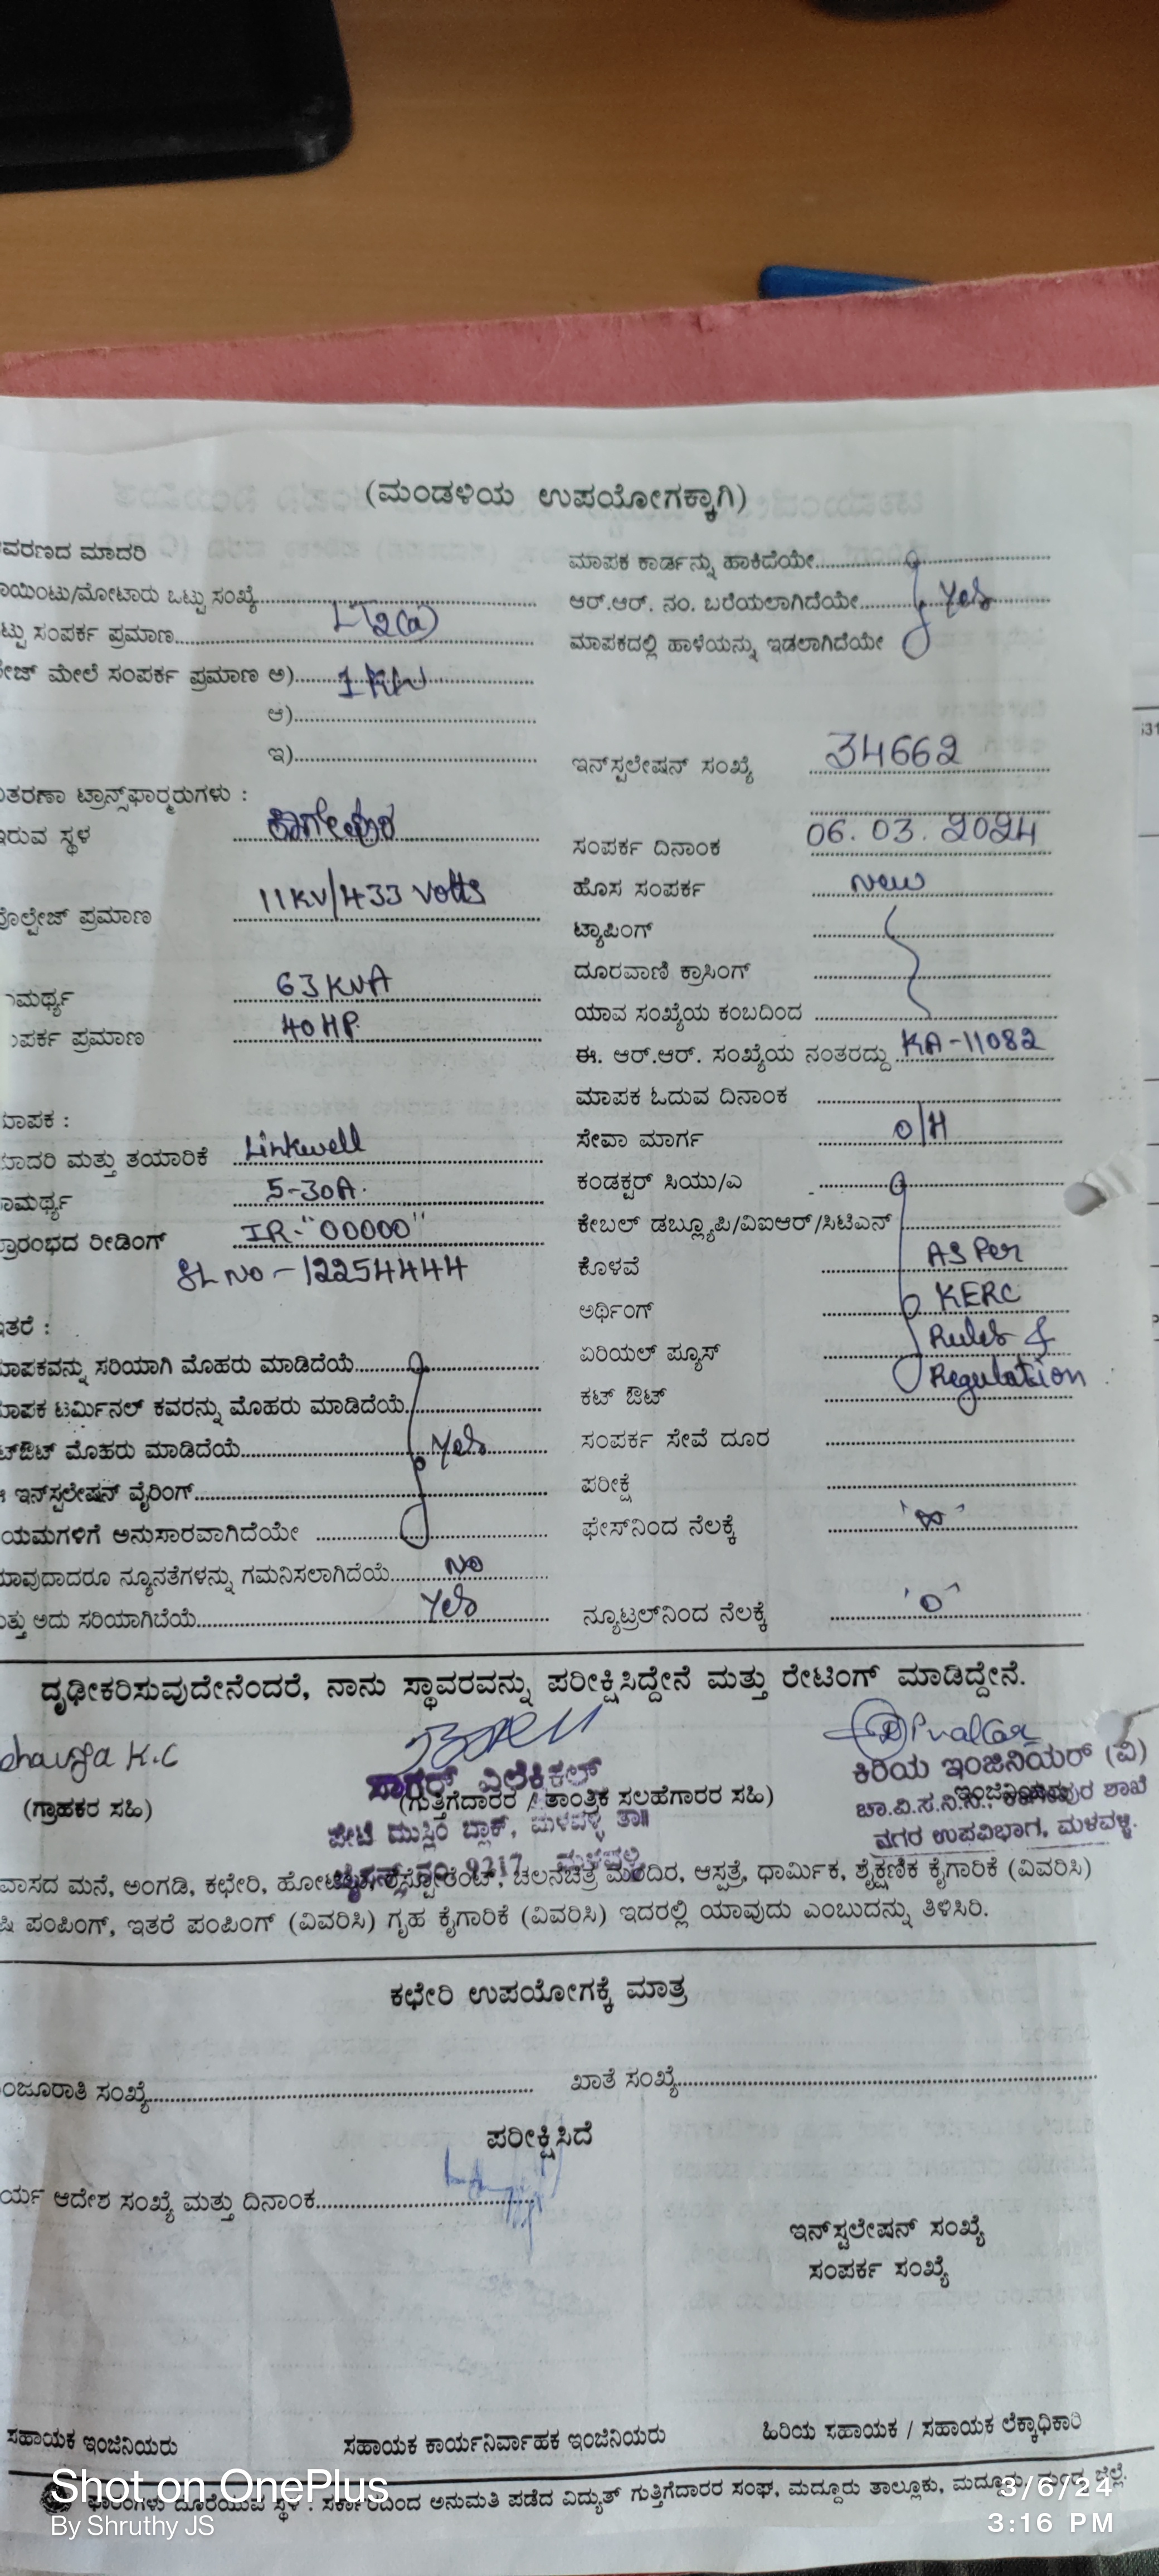 (ಮಂಡಳಿಯ ಉಪಯೋಗಕ್ಕಾಗಿ)
ವರಣದ ಮಾದರಿ
ಾಯಿಂಟು/ಮೋಟಾರು ಒಟ್ಟು ಸಂಖ್ಯೆ........ LT2(a)
ಟ್ಟು ಸಂಪರ್ಕ ಪ್ರಮಾಣ........
ೇಜ್ ಮೇಲೆ ಸಂಪರ್ಕ ಪ್ರಮಾಣ ಅ)........ 1 KW
ಆ)........
ಇ)........
ಿತರಣಾ ಟ್ರಾನ್ಸ್‌ಫಾರ್ಮರುಗಳು :
ಇರುವ ಸ್ಥಳ ಕಾಗೇಪುರ
ವೊಲ್ಟೇಜ್ ಪ್ರಮಾಣ 11KV/433 Volts
ಾಮರ್ಥ್ಯ 63 KVA
ಂಪರ್ಕ ಪ್ರಮಾಣ 40 HP
ಮಾಪಕ :
ಮಾದರಿ ಮತ್ತು ತಯಾರಿಕೆ Linkwell
ಾಮರ್ಥ್ಯ 5-30A.
ಪ್ರಾರಂಭದ ರೀಡಿಂಗ್ IR-"00000"
SL NO - 12254444
ಇತರೆ :
ಮಾಪಕವನ್ನು ಸರಿಯಾಗಿ ಮೊಹರು ಮಾಡಿದೆಯೆ........
ಮಾಪಕ ಟರ್ಮಿನಲ್ ಕವರನ್ನು ಮೊಹರು ಮಾಡಿದೆಯೆ........
ಟ್‌ಔಟ್ ಮೊಹರು ಮಾಡಿದೆಯೆ........ Yes
ಇನ್‌ಸ್ಟಲೇಷನ್ ವೈರಿಂಗ್........
ಯಮಗಳಿಗೆ ಅನುಸಾರವಾಗಿದೆಯೇ ........
ಯಾವುದಾದರೂ ನ್ಯೂನತೆಗಳನ್ನು ಗಮನಿಸಲಾಗಿದೆಯೆ........ NO
ತ್ತು ಅದು ಸರಿಯಾಗಿಬೆಯೆ........ Yes
ಮಾಪಕ ಕಾರ್ಡನ್ನು ಹಾಕಿದೆಯೇ........
ಆರ್.ಆರ್. ನಂ. ಬರೆಯಲಾಗಿದೆಯೇ........ Yes
ಮಾಪಕದಲ್ಲಿ ಹಾಳೆಯನ್ನು ಇಡಲಾಗಿದೆಯೇ
ಇನ್‌ಸ್ಟಲೇಷನ್ ಸಂಖ್ಯೆ 34662
ಸಂಪರ್ಕ ದಿನಾಂಕ 06.03.2024
ಹೊಸ ಸಂಪರ್ಕ New
ಟ್ಯಾಪಿಂಗ್
ದೂರವಾಣಿ ಕ್ರಾಸಿಂಗ್
ಯಾವ ಸಂಖ್ಯೆಯ ಕಂಬದಿಂದ
ಈ. ಆರ್.ಆರ್. ಸಂಖ್ಯೆಯ ನಂತರದ್ದು KA-11082
ಮಾಪಕ ಓದುವ ದಿನಾಂಕ
ಸೇವಾ ಮಾರ್ಗ O/H
ಕಂಡಕ್ಟರ್ ಸಿಯು/ಎ
ಕೇಬಲ್ ಡಬ್ಲ್ಯೂಪಿ/ವಿಐಆರ್/ಸಿಟಿಎನ್
ಕೊಳವೆ AS Per
ಅರ್ಥಿಂಗ್ KERC
ಏರಿಯಲ್ ಪ್ಯೂಸ್ Rules &
ಕಟ್ ಔಟ್ Regulation
ಸಂಪರ್ಕ ಸೇವೆ ದೂರ
ಪರೀಕ್ಷೆ
ಫೇಸ್‌ನಿಂದ ನೆಲಕ್ಕೆ '∞'
ನ್ಯೂಟ್ರಲ್‌ನಿಂದ ನೆಲಕ್ಕೆ '0'
ದೃಢೀಕರಿಸುವುದೇನೆಂದರೆ, ನಾನು ಸ್ಥಾವರವನ್ನು ಪರೀಕ್ಷಿಸಿದ್ದೇನೆ ಮತ್ತು ರೇಟಿಂಗ್ ಮಾಡಿದ್ದೇನೆ.
K.C
(ಗ್ರಾಹಕರ ಸಹಿ)
ಸಾಗರ್ ಎಲೆಕ್ಟ್ರಿಕಲ್
(ಗುತ್ತಿಗೆದಾರರ / ತಾಂತ್ರಿಕ ಸಲಹೆಗಾರರ ಸಹಿ)
ಪೇಟೆ ಮುಸ್ಲಿಂ ಬ್ಲಾಕ್, ಮಳವಳ್ಳಿ ತಾ॥
ಕಿರಿಯ ಇಂಜಿನಿಯರ್ (ವಿ)
ಚಾ.ವಿ.ಸ.ನಿ.ನಿ., ಶಾಖೆ
ನಗರ ಉಪವಿಭಾಗ, ಮಳವಳ್ಳಿ.
ವಾಸದ ಮನೆ, ಅಂಗಡಿ, ಕಛೇರಿ, ಚಲನಚಿತ್ರ ಮಂದಿರ, ಆಸ್ಪತ್ರೆ, ಧಾರ್ಮಿಕ, ಶೈಕ್ಷಣಿಕ ಕೈಗಾರಿಕೆ (ವಿವರಿಸಿ)
ಷಿ ಪಂಪಿಂಗ್, ಇತರೆ ಪಂಪಿಂಗ್ (ವಿವರಿಸಿ) ಗೃಹ ಕೈಗಾರಿಕೆ (ವಿವರಿಸಿ) ಇದರಲ್ಲಿ ಯಾವುದು ಎಂಬುದನ್ನು ತಿಳಿಸಿರಿ.
ಕಛೇರಿ ಉಪಯೋಗಕ್ಕೆ ಮಾತ್ರ
ಂಜೂರಾತಿ ಸಂಖ್ಯೆ........ ಖಾತೆ ಸಂಖ್ಯೆ........
ಪರೀಕ್ಷಿಸಿದೆ
ರ್ಯ ಆದೇಶ ಸಂಖ್ಯೆ ಮತ್ತು ದಿನಾಂಕ........
ಇನ್‌ಸ್ಟಲೇಷನ್ ಸಂಖ್ಯೆ
ಸಂಪರ್ಕ ಸಂಖ್ಯೆ
ಸಹಾಯಕ ಇಂಜಿನಿಯರು ಸಹಾಯಕ ಕಾರ್ಯನಿರ್ವಾಹಕ ಇಂಜಿನಿಯರು ಹಿರಿಯ ಸಹಾಯಕ / ಸಹಾಯಕ ಲೆಕ್ಕಾಧಿಕಾರಿ
ಫಾರಂಗಳು ದೊರೆಯುವ ಸ್ಥಳ : ಸರ್ಕಾರದಿಂದ ಅನುಮತಿ ಪಡೆದ ವಿದ್ಯುತ್ ಗುತ್ತಿಗೆದಾರರ ಸಂಘ, ಮದ್ದೂರು ತಾಲ್ಲೂಕು, ಮದ್ದೂರು, ಮಂಡ್ಯ ಜಿಲ್ಲೆ.
Shot on OnePlus
By Shruthy JS
3/6/24
3:16 PM